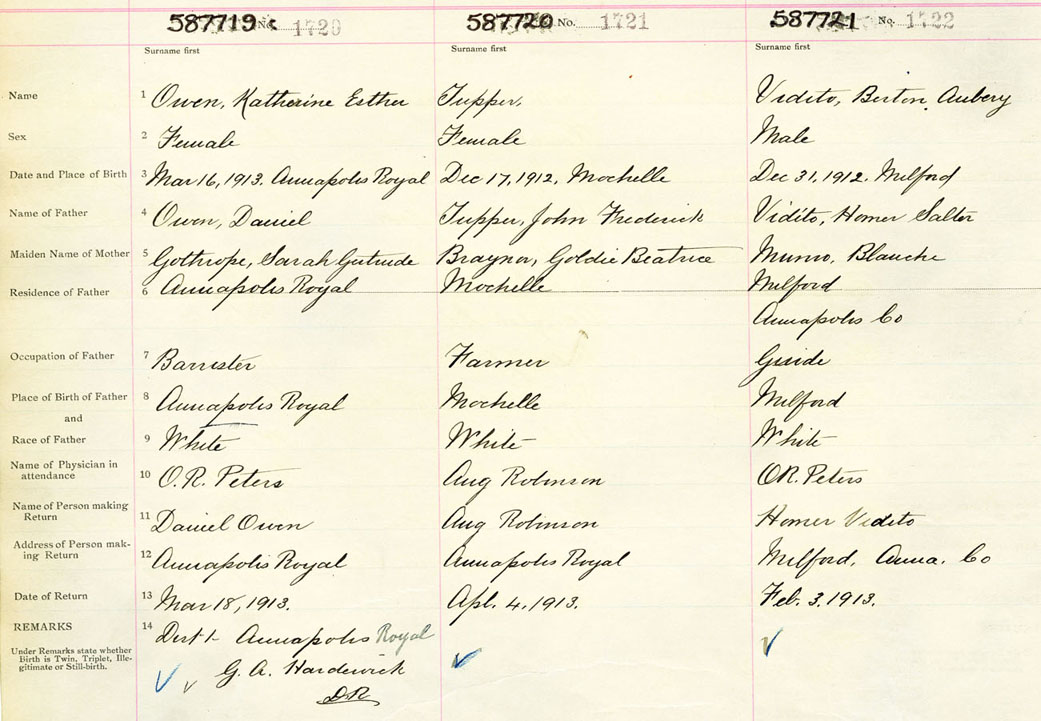 587719 No. 1720 587720 No. 1721 587721 No. 1722
Surname first Surname first Surname first
Name 1 Owen, Katherine Esther Tupper, Vidito, Berton Aubery
Sex 2 Female Female Male
Date and Place of Birth 3 Mar 16, 1913. Annapolis Royal Dec 17, 1912, Mochelle Dec 31, 1912. Milford
Name of Father 4 Owen, Daniel Tupper, John Frederick Vidito, Homer Salter
Maiden Name of Mother 5 Gothrope, Sarah Gertrude Braynor, Goldie Beatrice Munro, Blanche
Residence of Father 6 Annapolis Royal Mochelle Milford
Annapolis Co
Occupation of Father 7 Barrister Farmer Guide
Place of Birth of Father 8 Annapolis Royal Mochelle Milford
and
Race of Father 9 White White White
Name of Physician in
attendance 10 O.R. Peters Aug Robinson O.R. Peters
Name of Person making
Return 11 Daniel Owen Aug Robinson Homer Vidito
Address of Person mak-
ing Return 12 Annapolis Royal Annapolis Royal Milford, Anna. Co
Date of Return 13 Mar 18, 1913. Apl. 4, 1913. Feb. 3. 1913.
REMARKS 14 Dist 1- Annapolis Royal
Under Remarks state whether
Birth is Twin, Triplet, Ille-
gitimate or Still-birth.
G. A. Hardwick
D.R